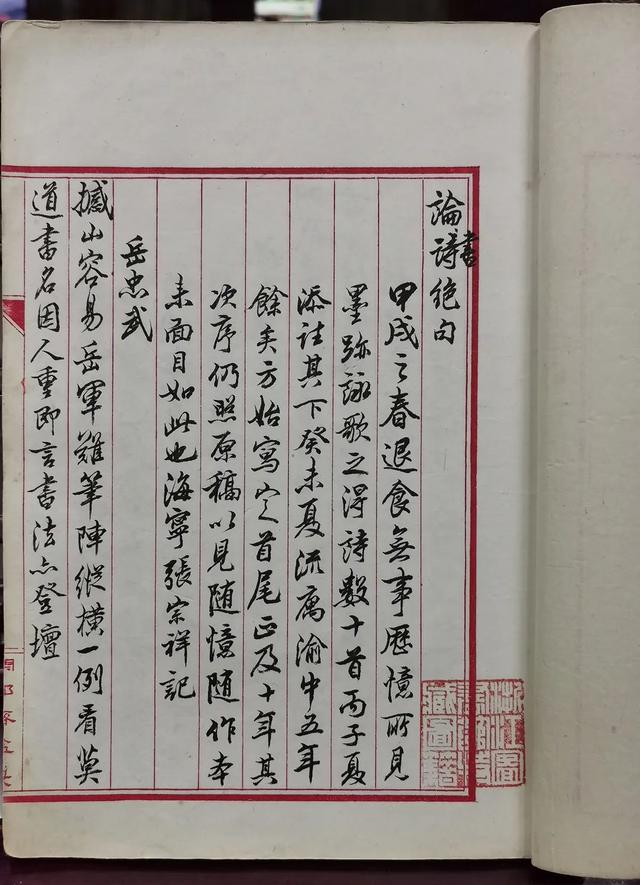 論詩書絕句
甲戌之春退食無事歷憶所見
墨跡詠歌之得詩數十首丙子夏
添註其下癸未夏流寓渝中五年
餘矣方始寫定首尾正及十年其
次序仍照原稿以見隨憶隨作本
來面目如此也海寧張宗祥記
岳忠武
撼山容易岳軍難筆陣縱橫一例看莫
道書名因人重即言書法亦登壇
浙江圖
書館
藏圖籍